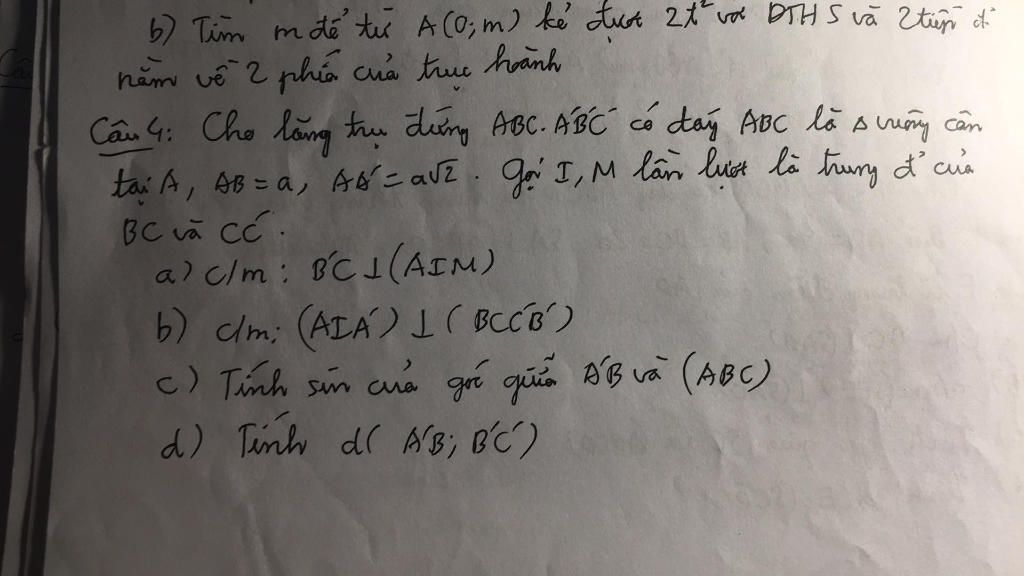 b) Tìm m để từ A(0;m) kẻ được 2t² với ĐTHS và 2 tiếp đ²
nằm về 2 phía của trục hoành
Câu 4: Cho lăng trụ đứng ABC.A'B'C' có đáy ABC là Δ vuông cân
tại A, AB = a, AA' = a√2. Gọi I, M lần lượt là trung đ² của
BC và CC'.
a) c/m: B'C ⊥ (AIM)
b) c/m: (AIA') ⊥ (BCC'B')
c) Tính sin của góc giữa A'B và (ABC)
d) Tính d( A'B; B'C')